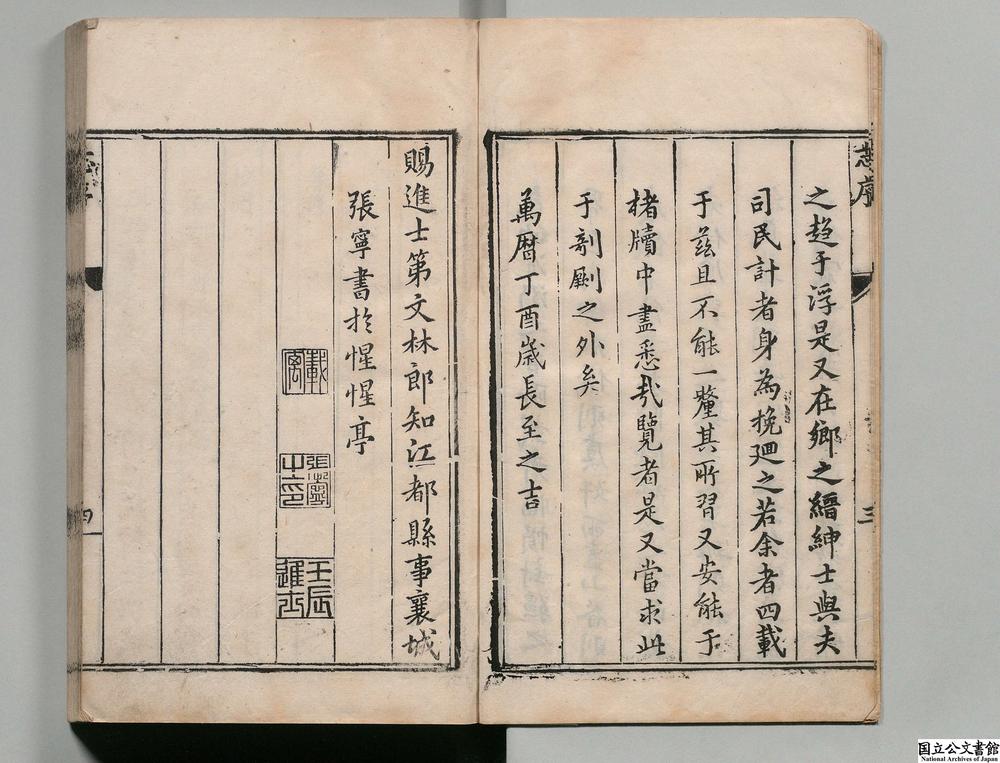 之趋于浮是又在鄉之縉紳士與夫
司民計者身為挽迴之若余者四載
于茲且不能一釐其所習又安能于
楮牘中盡悉哉覽者是又當求此
于剞劂之外矣
萬曆丁酉歲長至之吉
賜進士第文林郎知江都縣事襄城
張寧書於惺惺亭
張寧之印
壬辰進士
三
四
国立公文書館
National Archives of Japan